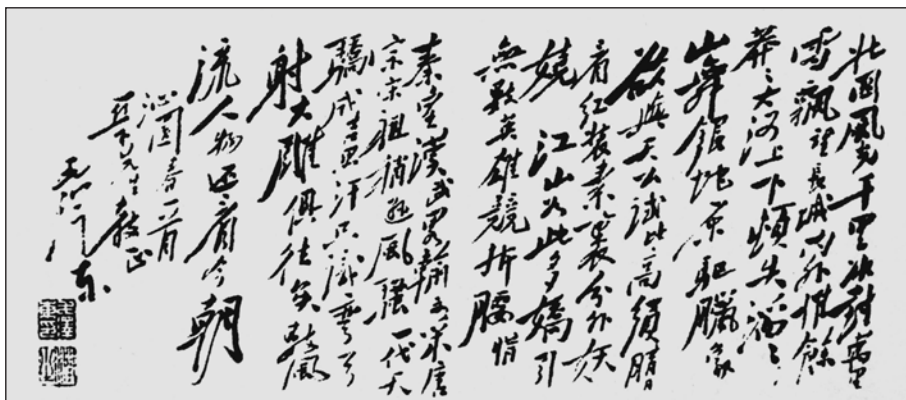 北國風光千里冰封萬里
雪飄望長城內外惟餘
莽〻大河上下頓失滔〻
山舞銀蛇原驅臘象
欲與天公試比高須晴日
看紅裝素裹分外妖
嬈 江山如此多嬌引
無數英雄競折腰惜
秦皇漢武略輸文采唐
宗宋祖稍遜風騷一代天
驕成吉思汗只識彎弓
射大雕俱往矣數風
流人物還看今朝
沁園春一首
亞子先生教正
毛澤東